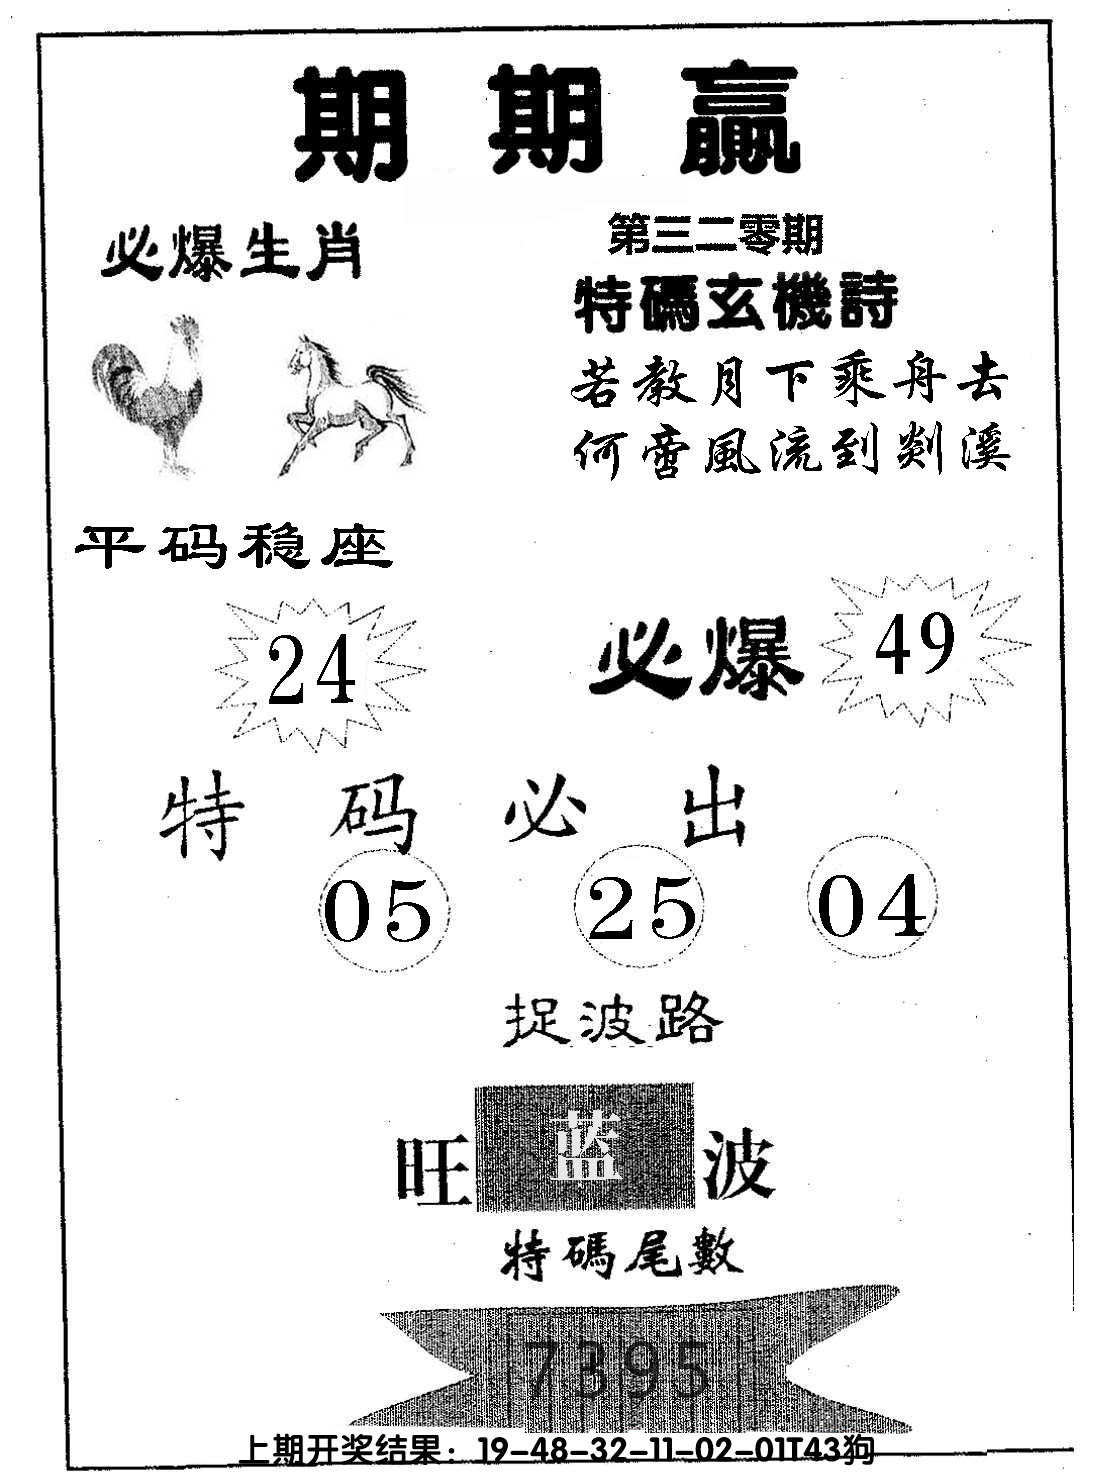 期期赢
第三二零期
必爆生肖
特碼玄機詩
若教月下乘舟去
何啻風流到剡溪
平码稳座
24
必爆
49
特码必出
05 25 04
捉波路
旺蓝波
特碼尾數
7395
上期开奖结果：19-48-32-11-02-01T43狗